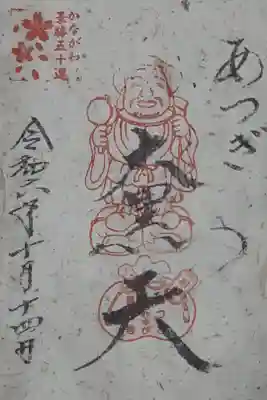 あつぎの
大黒天
かながわ
景勝五十選
令和六年十月十四日